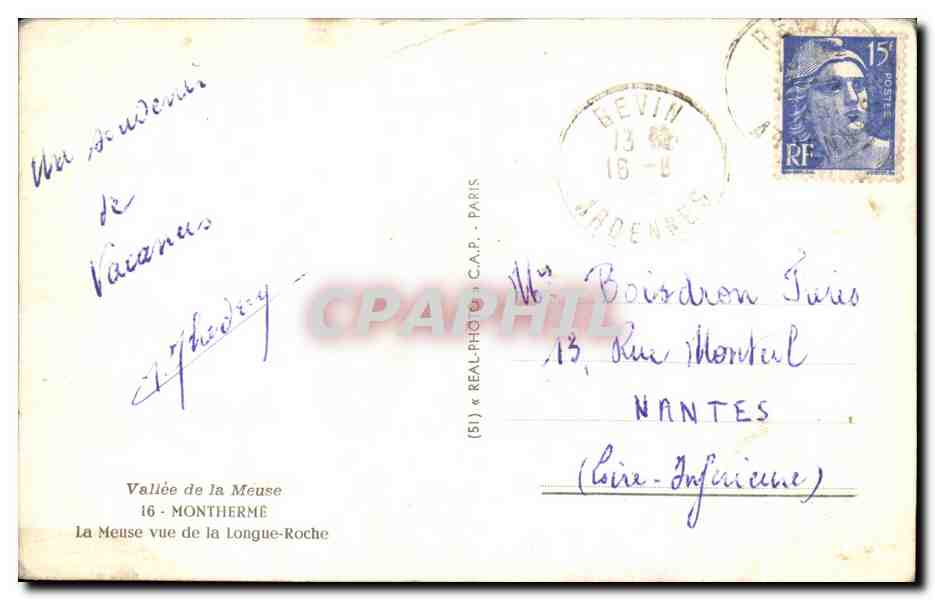 Un souvenir
de
Vacances
Vallée de la Meuse
16 - MONTHERMÉ
La Meuse vue de la Longue-Roche
(51) « REAL-PHOTO » C.A.P. - PARIS
REVIN
13
16 - 8
ARDENNES
REVIN
15F
POSTES
RF
Mrs Boisdron Frères
13, Rue Monteil
NANTES
(Loire-Inférieure)
CPAPHIL